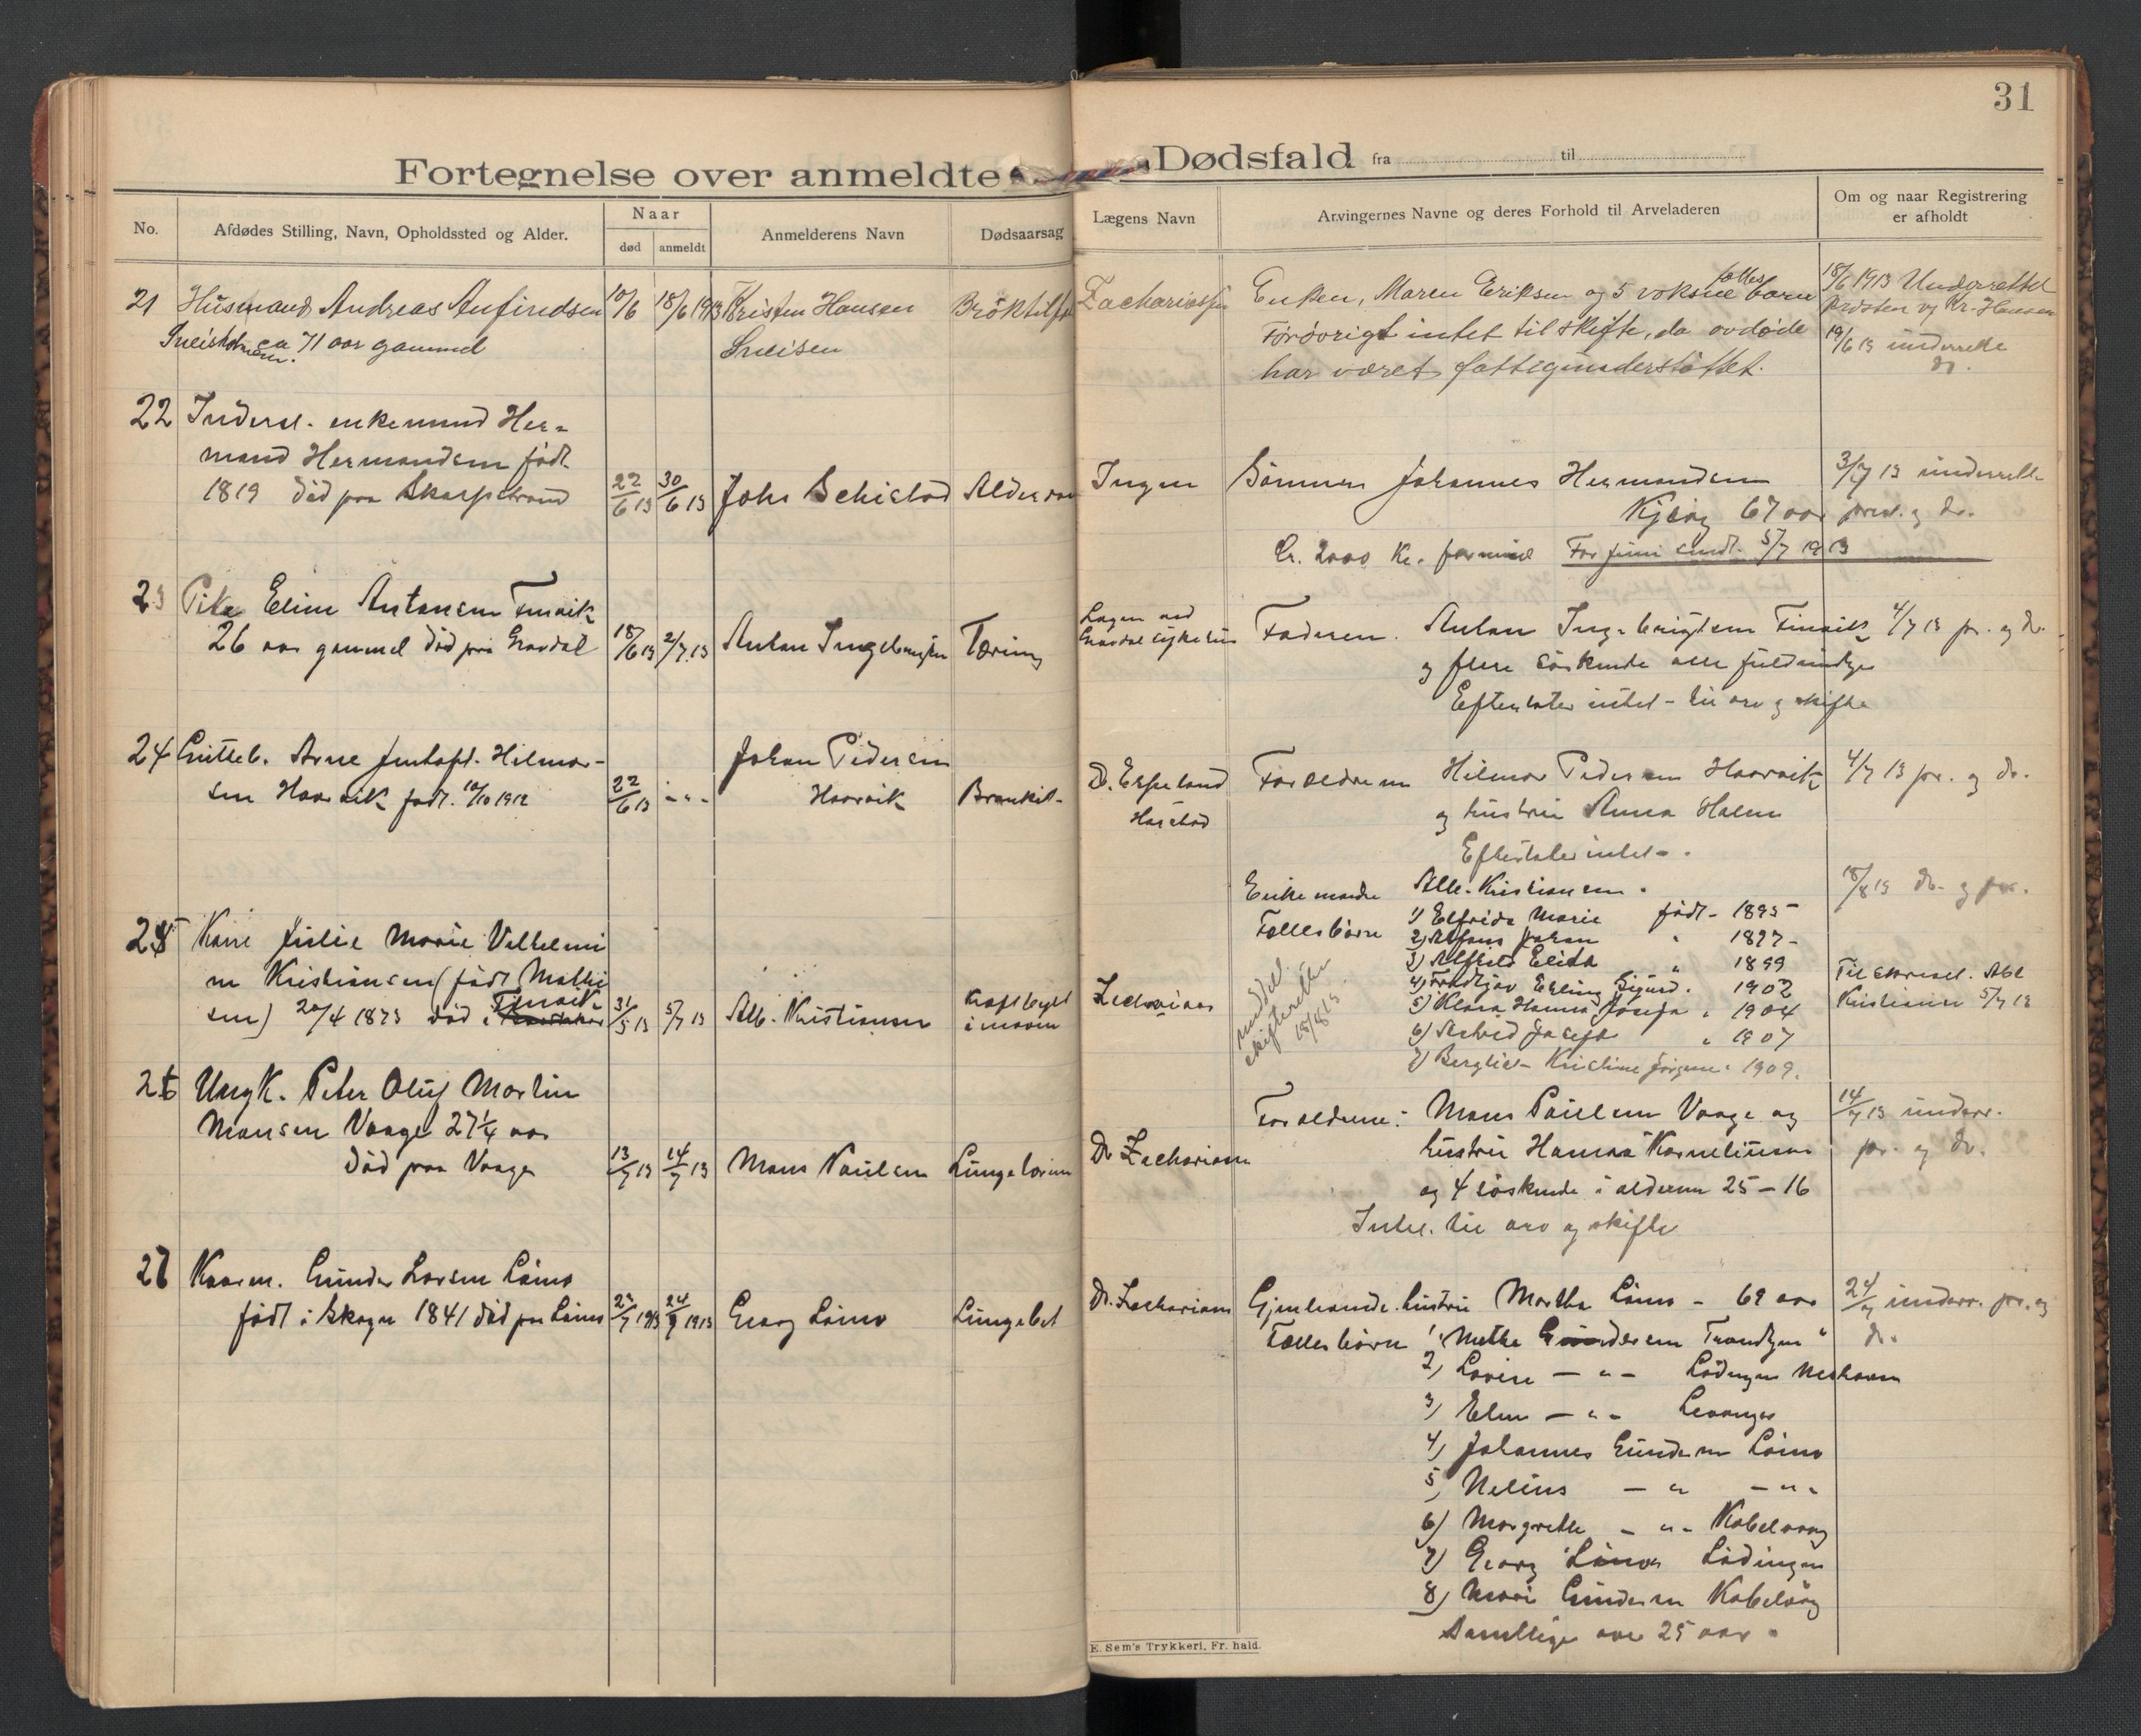 31
Fortegnelse over anmeldte Dødsfald fra til
No.
Afdødes Stilling, Navn, Opholdssted og Alder.
Naar
død
anmeldt
Anmelderens Navn
Dødsaarsag
Lægens Navn
Arvingernes Navne og deres Forhold til Arveladeren
Om og naar Registrering
er afholdt
21 Husmand Andreas Anfindsen 10/6 18/6 1913 Kristen Hansen
ca 71 aar gammel
Enken, Maren Eriksen og 5 voksne fælles børn
Forøvrigt intet til skifte, da avdøde
har været fattigunderstøttet.
18/6 1913 Underrettet
Presten og Kr. Hansen
19/6 13 underrette
dr.
22 Inderst. enkemand Her-
mand Hermandsen født
1819 død paa Skarpstrand 22/6 13 30/6 13 Johs Schistad Alderdom
Ingen
Sønnen Johannes Hermandsen
67 aar
Ca. 2000 Kr. formue For juni sendt 5/7 1913
3/7 13 underrette
prest. og dr.
23 Pike Eline Antonsen Finvik
26 aar gammel død paa Gravdal 18/6 13 2/7 13 Anton Ingebrigtsen Tæring
Lægen ved
Gravdal sykehus
Faderen. Anton Ingebrigtsen Finvik
og flere søskende alle fuldmyndige
Efterlater intet til arv og skifte
4/7 13 pr. og dr.
24 Gutteb. Arne Hilmar-
sen Haarvik født. 10/10 1912 22/6 13 -"-
Johan Pedersen
Haarvik
Bronkit-
D. Espeland
Harstad
Forældrene Hilmar Pedersen Haarvik
og hustru Anna Halsen
Efterlater intet-.
4/7 13 pr. og dr.
25 Kone Julie Marie Vilhelmi
ne Kristiansen (født Mathi
sen) 20/4 1873 død i Finvik 31/5 13 5/7 13 Alb. Kristiansen
Kræftbyld
i maven
Zachariass
Enkemand Alb. Kristiansen.
Fællesbørn 1) Elfrida Marie født - 1895
2) Alfons Johan " 1897-
3) Alfhild Elida " 1899
4) Fridtjov Erling Sigurd " 1902
5) Klara Hanna Josefa " 1904
6) Astrid Josefa " 1907
7) Bergliot Kristine Jørgine " 1909.
meddel.
skifteretten
18/8 13.
18/8 13 dr. og pr.
Til Alb
Kristiansen 5/7 13
26 Ungk. Peter Oluf Martin
Monsen Vaage 27¼ aar
død paa Vaage 13/7 13 14/7 13 Mons Paulsen
Dr Zachariassen
Forældrene: Mons Paulsen Vaage og
hustru Hanna Korneliussen
og 4 søskende i alderen 25-16
Intet til arv og skifte
14/7 13 underr.
pr. og dr.
27 Kaarm. Gunder Larsen Låmo
født i Skogn 1841 død paa Låmo 1913 24/7 1913 Georg Låmo Lungebet
Dr. Zachariassen
Gjenlevende hustru Martha Låmo - 69 aar
Fællesbørn 1) Mette Gundersen Trondhjem
2) Lovise -"- Lødingen
3) Elen -"- Levanger
4) Johannes Gundersen Låmo
5) Nelius -"- -"-
6) Margrethe -"- Kabelvaag
7) Georg Låmo Lødingen
8) Marie Gundersen Kabelvåg
Samtlige over 25 aar.
24/7 underr. pr. og
dr.
E. Sem's Trykkeri, Fr. hald.